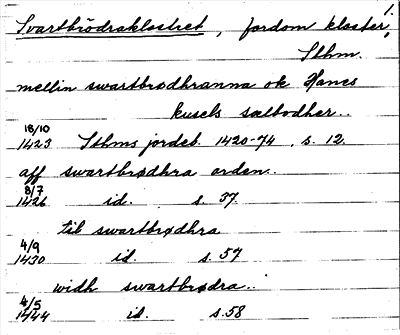 1.
Svartbrödraklostret, fordom kloster,
Sthm.
mellin swartbrødhranna ok Hanes
kusels sælbodher..
18/10
1423 Sthms jordeb. 1420-74, s. 12.
aff swartbrødhra orden..
8/7
1426 id. s. 37
til swartbrødhra
4/9
1430 id s. 57
widh swartbrødra..
4/5
1444 id. s. 58